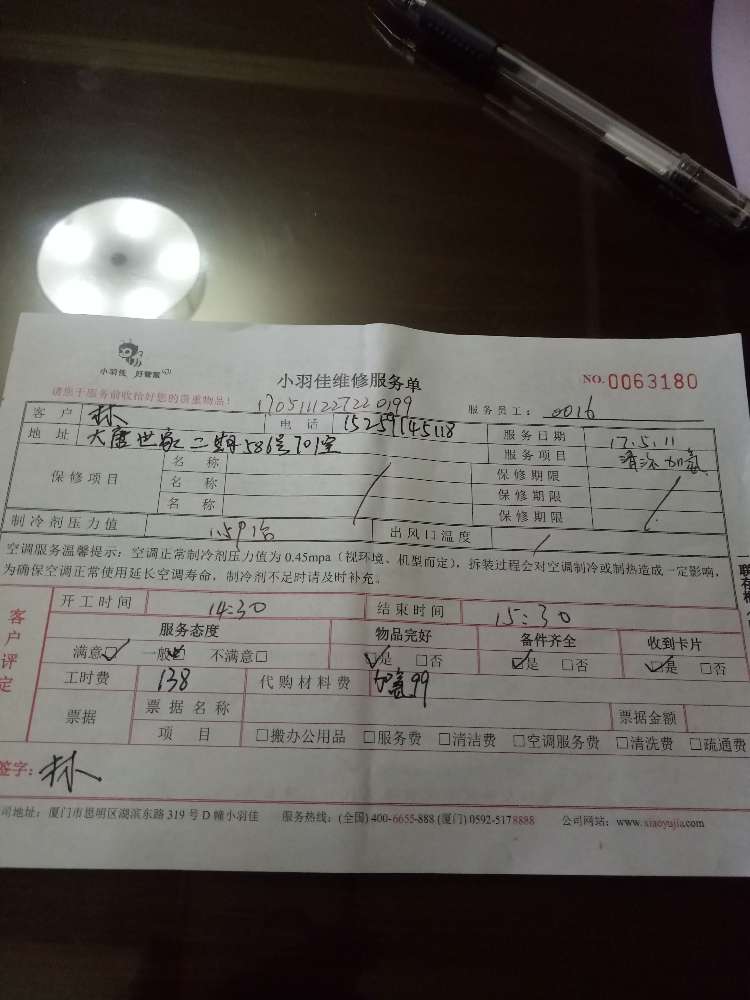 小羽佳 好管家
小羽佳维修服务单
NO. 0063180
请您于服务前收拾好您的贵重物品!
170511122722 0199
服务员工: 0016
客户 林 电话 15259145118 服务日期 17.5.11
地址 大唐世家二期586号701室 服务项目 清洗加氨
保修项目 名称 保修期限
名称 保修期限
名称 保修期限
制冷剂压力值 1.5P 出风口温度
空调服务温馨提示:空调正常制冷剂压力值为0.45mpa(视环境、机型而定),拆装过程会对空调制冷或制热造成一定影响,
为确保空调正常使用延长空调寿命,制冷剂不足时请及时补充。
开工时间 14:30 结束时间 15:30
客户评定
服务态度 物品完好 备件齐全 收到卡片
满意☑ 一般 不满意□ ☑是 □否 ☑是 □否 ☑是 □否
工时费 138 代购材料费 加氨99
票据 票据名称 票据金额
项目 □搬办公用品 □服务费 □清洁费 □空调服务费 □清洗费 □疏通费
签字: 林
司地址:厦门市思明区湖滨东路319号D幢小羽佳 服务热线:(全国)400-6655-888(厦门)0592-5178888 公司网站:www.xiaoyujia.com